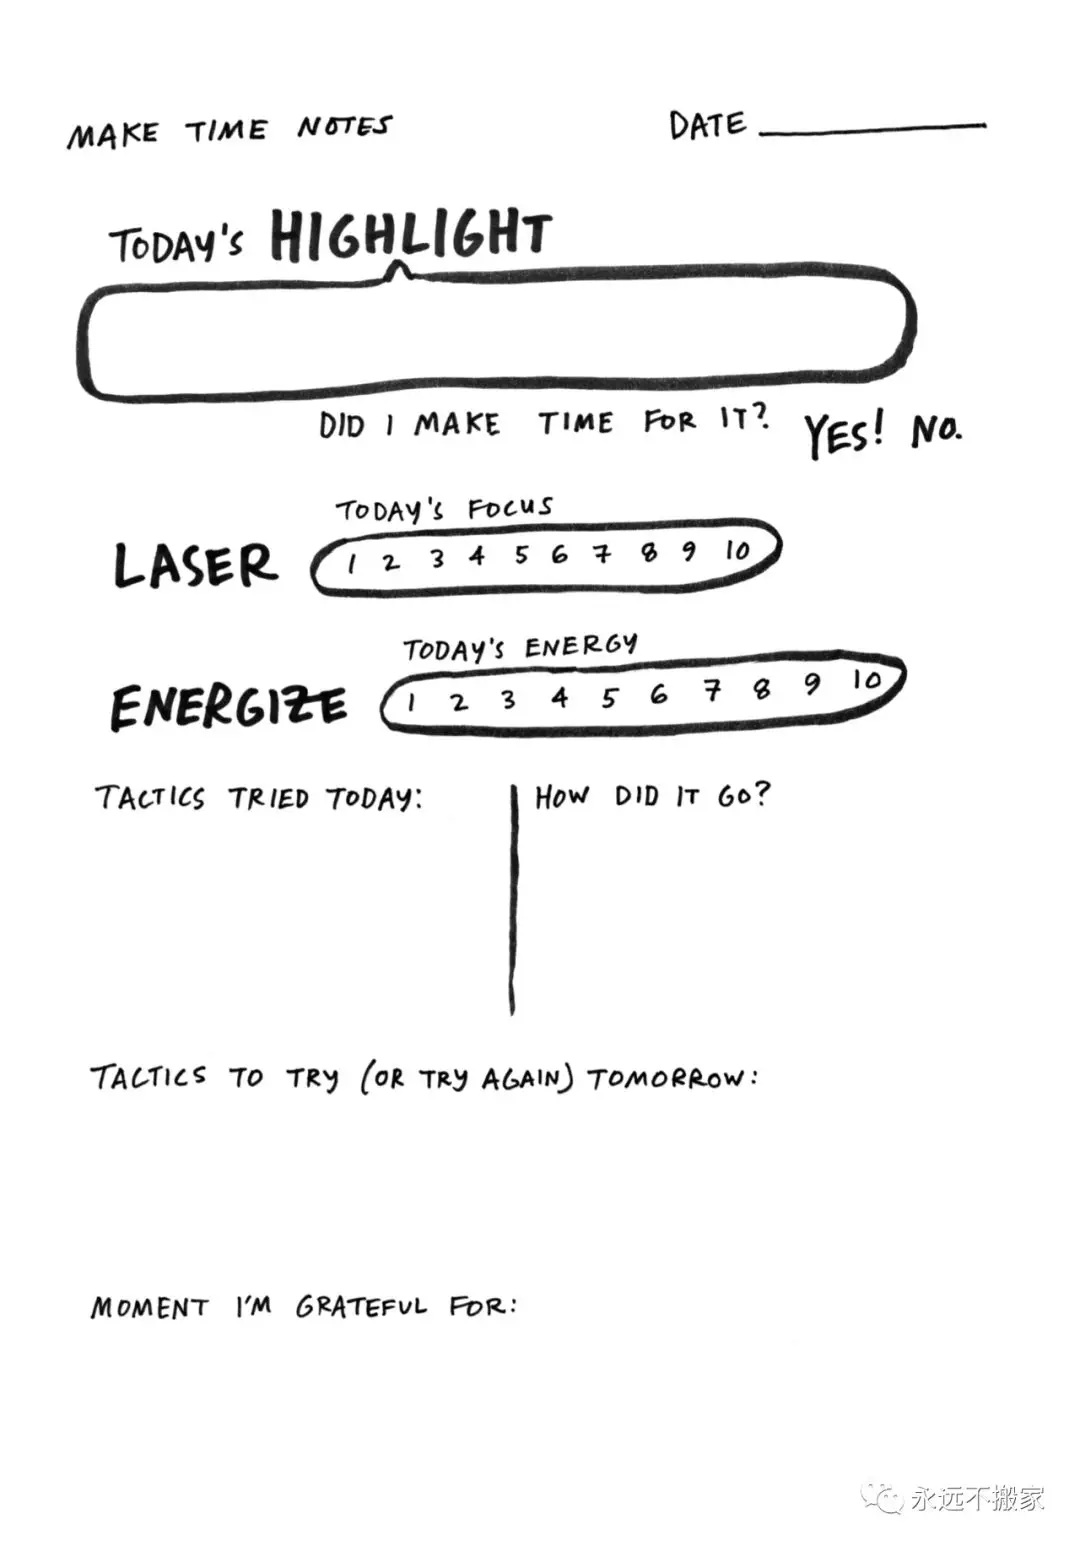 MAKE TIME NOTES DATE
TODAY'S HIGHLIGHT
DID I MAKE TIME FOR IT? YES! NO.
TODAY'S FOCUS
LASER 1 2 3 4 5 6 7 8 9 10
TODAY'S ENERGY
ENERGIZE 1 2 3 4 5 6 7 8 9 10
TACTICS TRIED TODAY: HOW DID IT GO?
TACTICS TO TRY (OR TRY AGAIN) TOMORROW:
MOMENT I'M GRATEFUL FOR:
永远不搬家